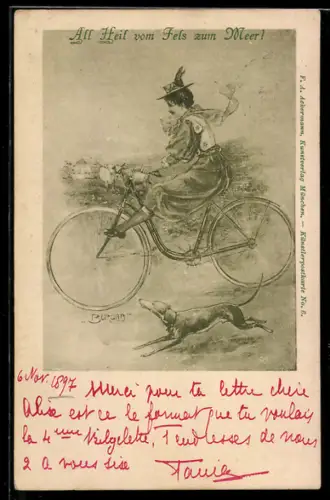 All Heil vom Fels zum Meer!
F. A. Ackermann, Kunstverlag München. – Künstlerpostkarte No. 8.
6 Nov. 1897
Merci pour ta lettre chère
est ce le format que tu voulais
la 4ème 1 de nous
2 a vous six